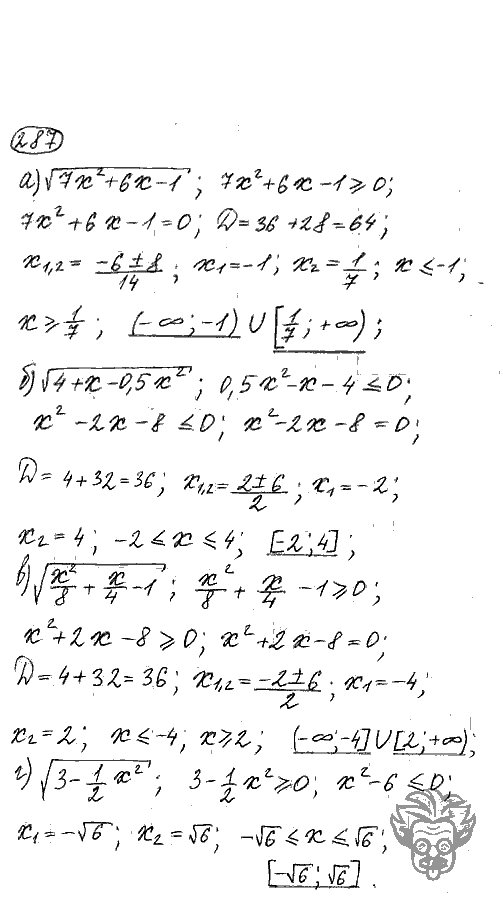 287
а) √(7x²+6x-1); 7x²+6x-1≥0;
7x²+6x-1=0; D=36+28=64;
x₁,₂ = (-6±8)/14; x₁=-1; x₂=1/7; x≤-1;
x≥1/7; (-∞;-1)∪[1/7;+∞);
б) √(4+x-0,5x²); 0,5x²-x-4≤0;
x²-2x-8≤0; x²-2x-8=0;
D=4+32=36; x₁,₂=(2±6)/2; x₁=-2;
x₂=4; -2≤x≤4; [-2;4];
в) √(x²/8+x/4-1); x²/8+x/4-1≥0;
x²+2x-8≥0; x²+2x-8=0;
D=4+32=36; x₁,₂=(-2±6)/2; x₁=-4;
x₂=2; x≤-4; x≥2; (-∞;-4]∪[2;+∞);
г) √(3-1/2x²); 3-1/2x²≥0; x²-6≤0;
x₁=-√6; x₂=√6; -√6≤x≤√6;
[-√6;√6].